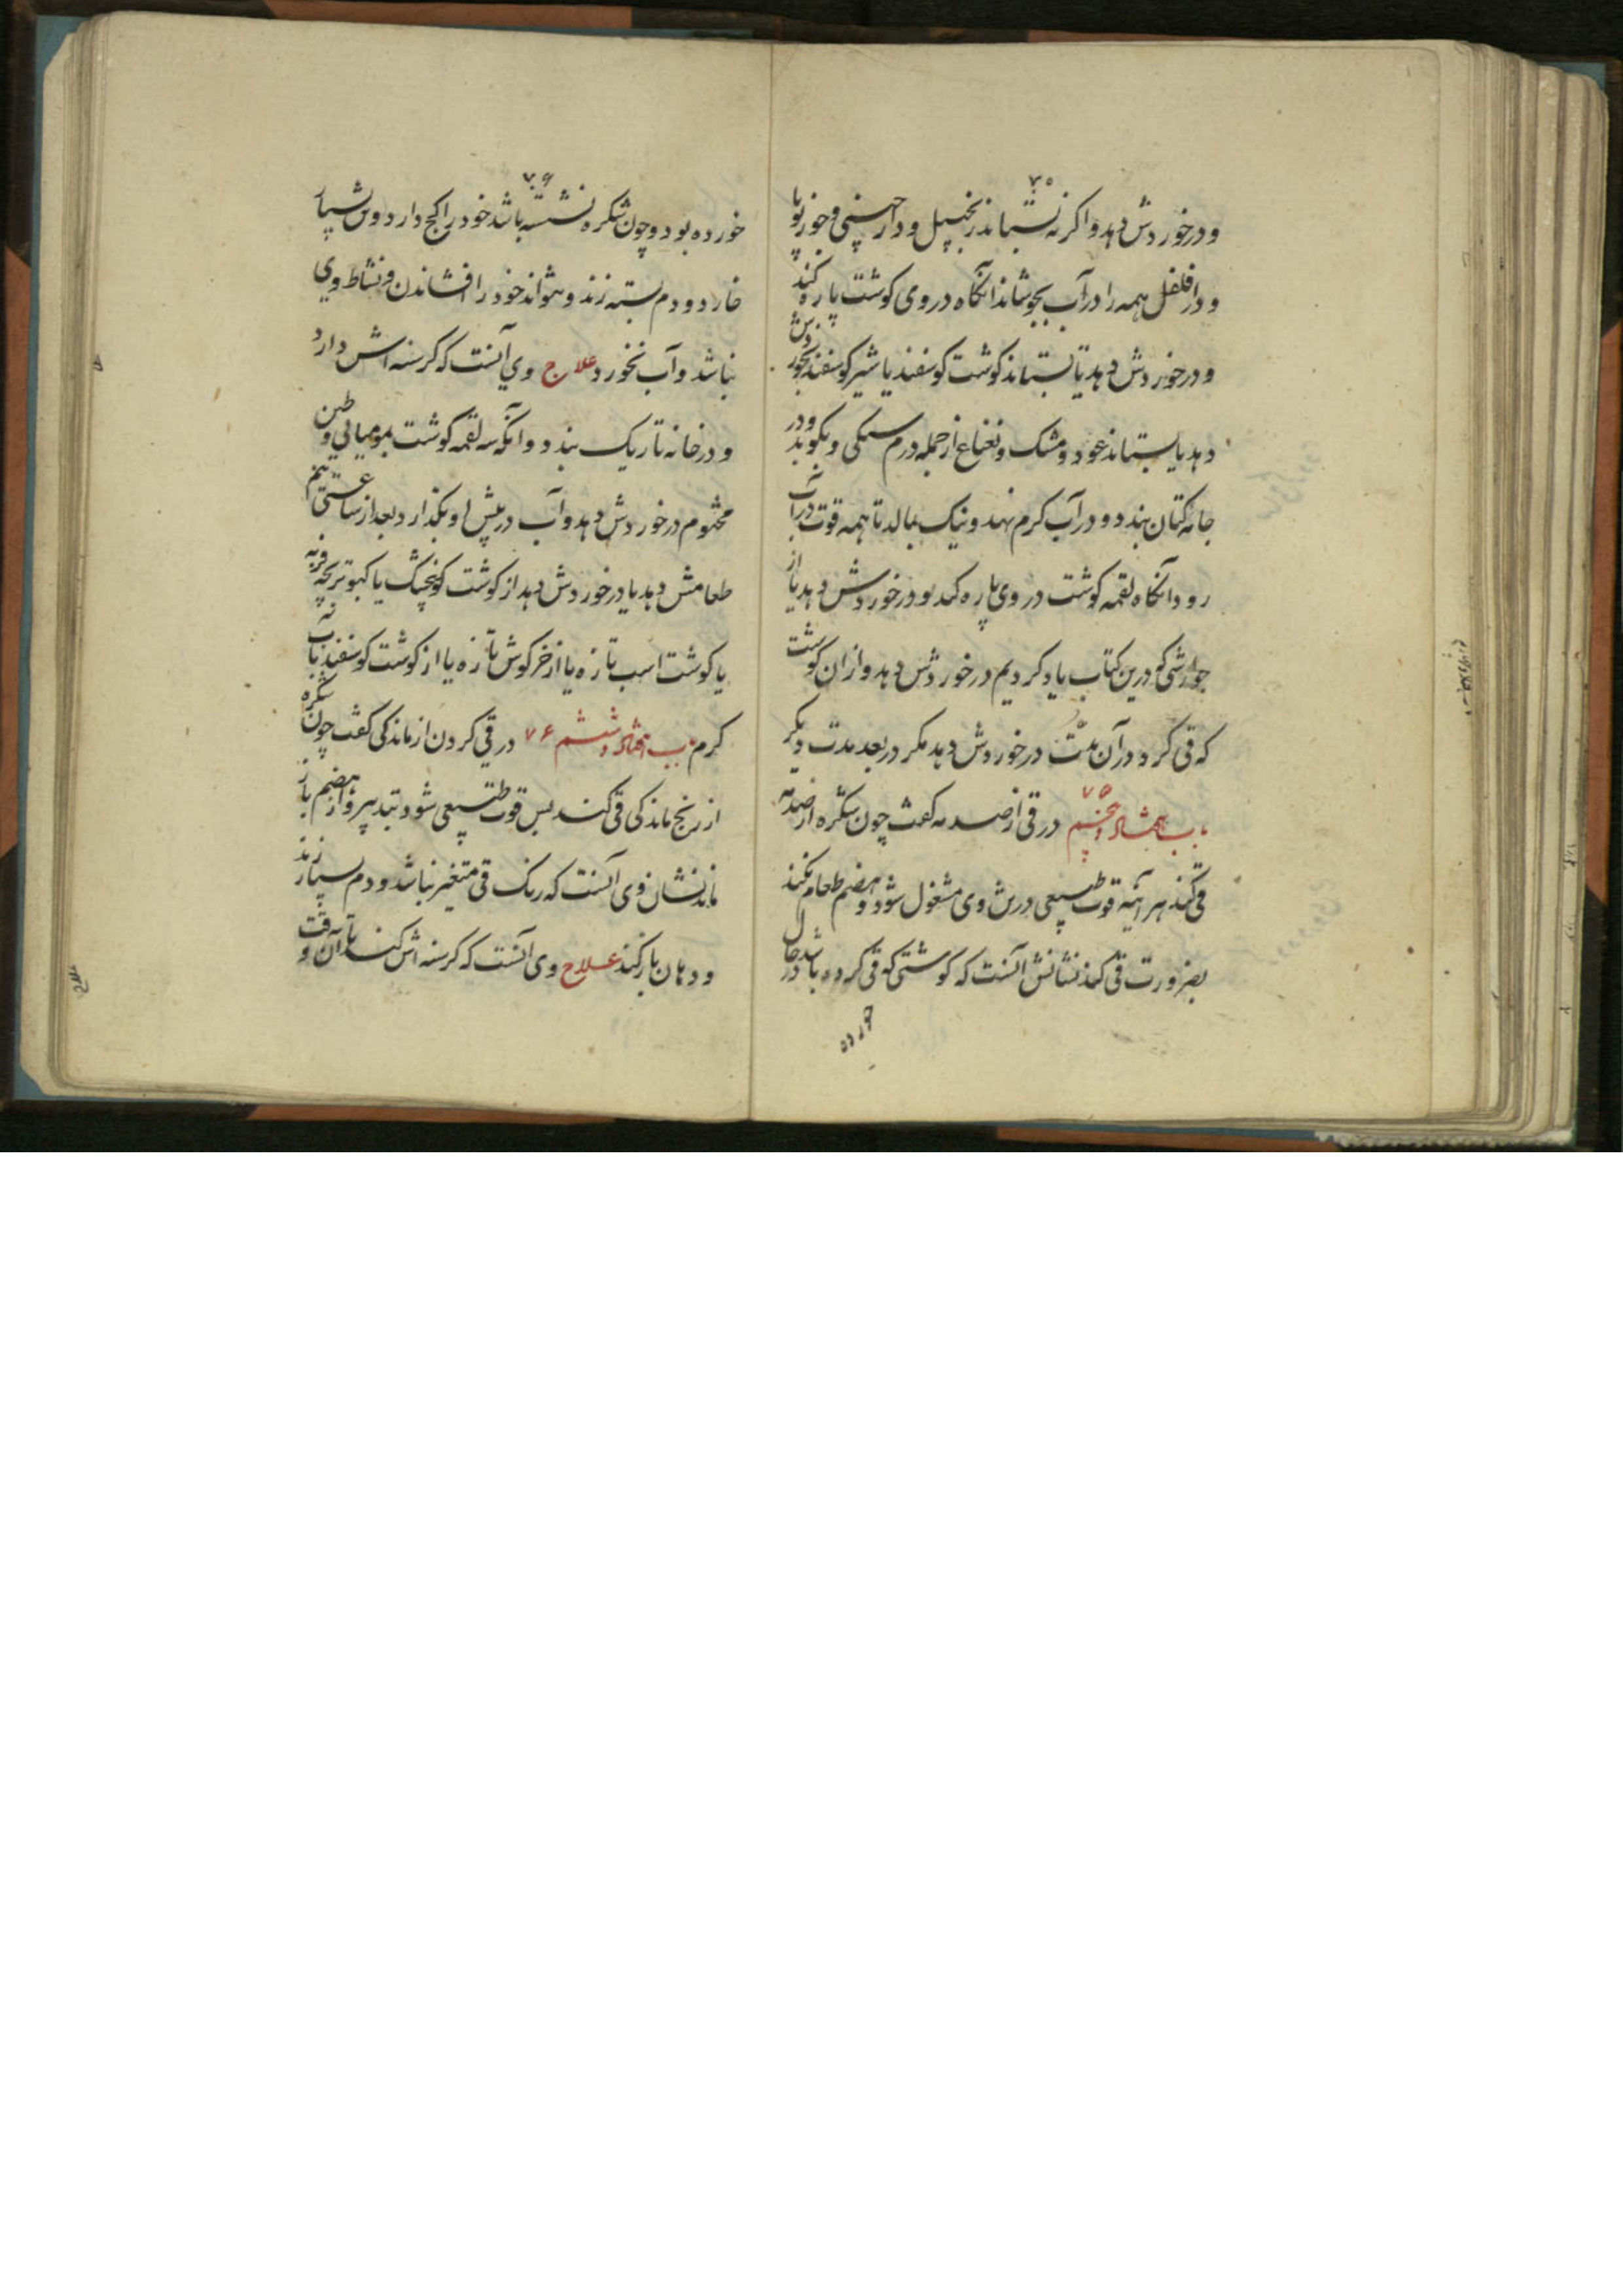 ۷۵
و در خوردش دهد و اگر نه بستاند زنجبیل و دارچینی و جوزبویا
و دارفلفل همه را در آب بجوشاند آنگاه در وی گوشت پاره کند
و در خوردش دهد یا بستاند گوشت گوسفند یا شیر گوسفند بخوردش
دهد یا بستاند عود و مشک و نعناع از جمله درم سنگی و بکوبد و در
جامه کتان بندد و در آب گرم نهد و نیک بمالد تا همه قوت در آب
رود آنگاه لقمه گوشت در وی پاره کند و در خوردش دهد یا از
جوارشی که درین کتاب یاد کردیم در خوردش دهد و از ان گوشت
که قی کرد در آن مدت در خوردش دهد مگر در بعد مدت دیگر
باب هفتاد و پنجم ۷۵ در قی از صدمه گفت چون شکره از صدمه
قی کند هر آینه قوت طبیعی درین وی مشغول شود و هضم طعام نکند
بضرورت قی کند نشانش آنست که گوشتی که قی کرده باشد در حال
خورده
۷۶
خورده بود و چون شکره نشسته باشد خود را کج دارد و بسیار
خارد و دم بسته زند و نتواند خود را افشاندن و نشاط وی
نباشد و آب نخورد علاج وی آنست که گرسنه اش دارد
و در خانه تاریک بندد و آنگه سه لقمه گوشت بمومیایی و طین
مختوم در خوردش دهد و آب در پیش او بگذارد بعد از ساعتی نیم
طعامش دهد یا در خوردش دهد از گوشت گنجشک یا کبوتر بچه فربه
یا گوشت اسب تازه یا از خرگوش تازه یا از گوشت گوسفند بآب
گرم باب هفتاد و ششم ۷۶ در قی کردن از ماندگی گفت چون شکره
از رنج ماندگی قی کند پس قوت طبیعی شود بتدبیر و از هضم باز
ماند نشان وی آنست که رنگ قی متغیر نباشد و دم بسیار زند
و دهان باز کند علاج وی آنست که گرسنه اش کند تا آن وقت